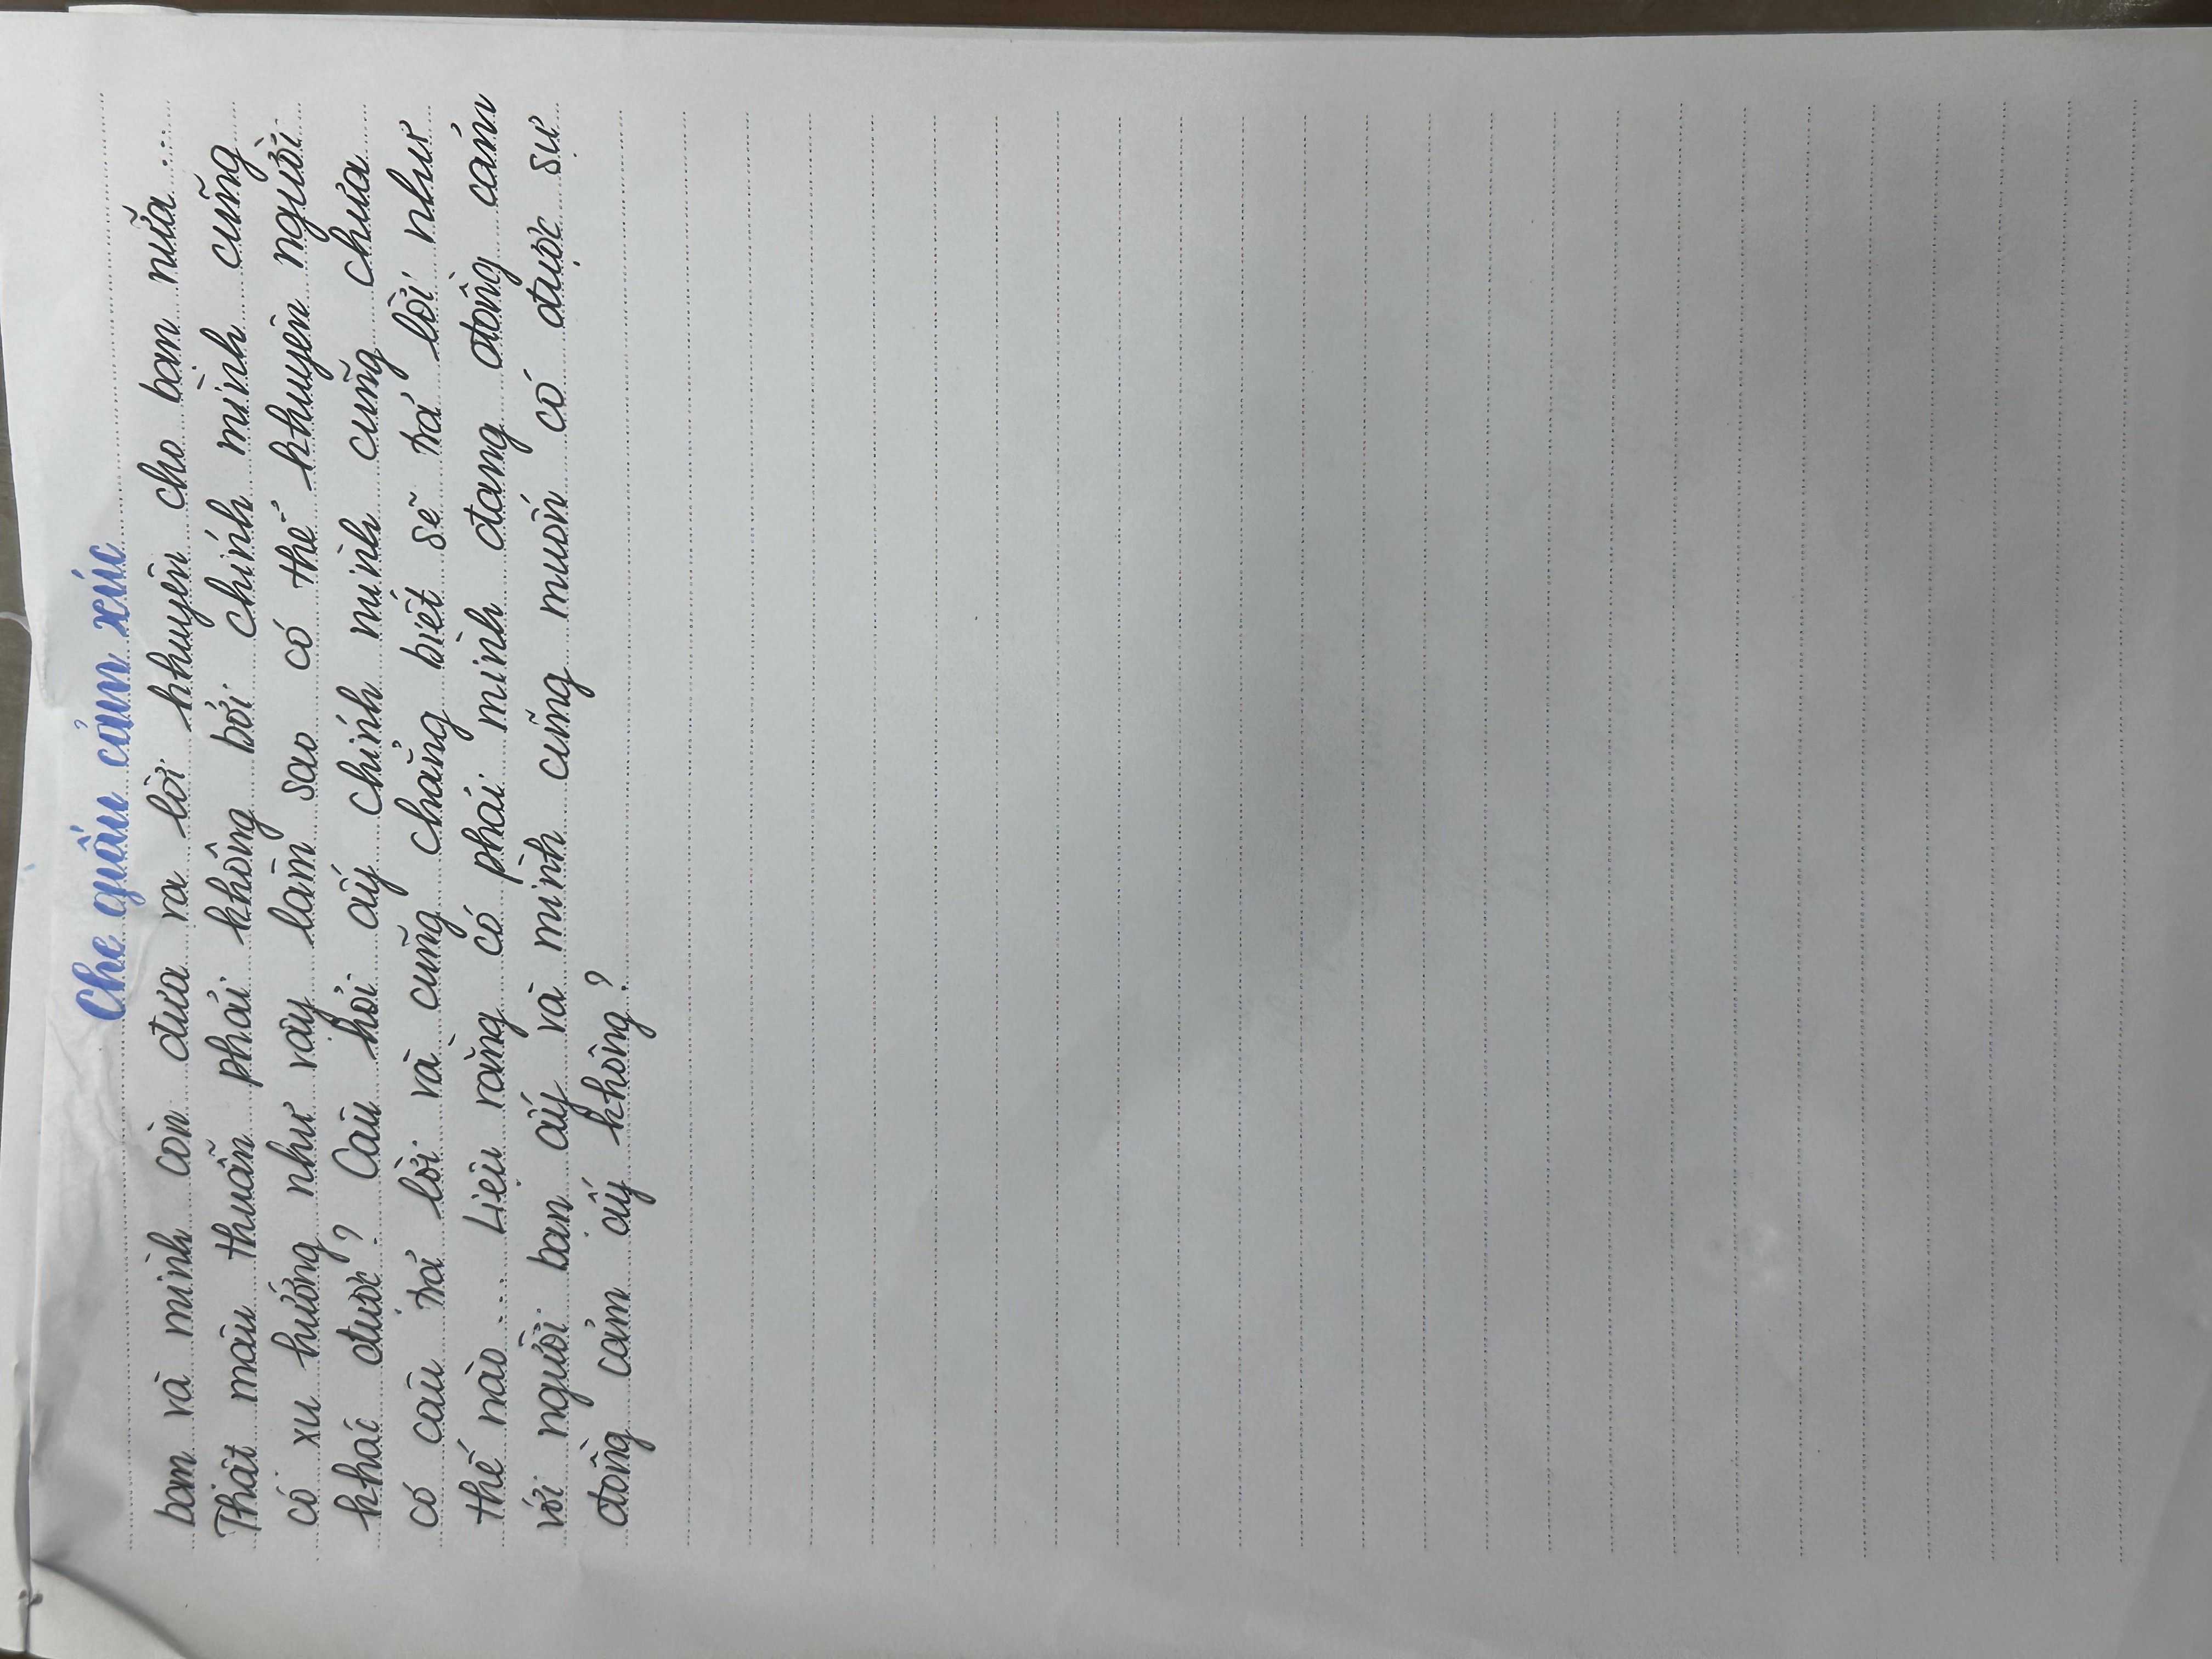 Che giấu cảm xúc
bạn và mình còn đưa ra lời khuyên cho bạn nữa ...
Thật mâu thuẫn phải không bởi chính mình cũng
có xu hướng như vậy làm sao có thể khuyên người
khác được? Câu hỏi ấy chính mình cũng chưa
có câu trả lời và cũng chẳng biết sẽ trả lời như
thế nào ... Liệu rằng có phải mình đang đồng cảm
với người bạn ấy và mình cũng muốn có được sự
đồng cảm ấy không?